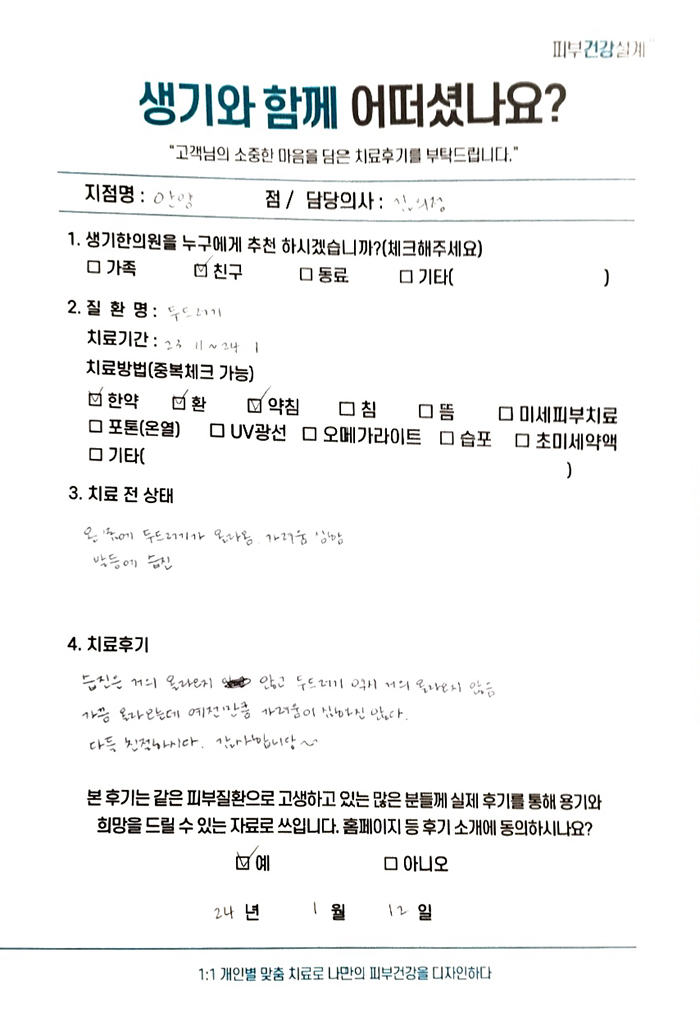 피부건강설계
생기와 함께 어떠셨나요?
"고객님의 소중한 마음을 담은 치료후기를 부탁드립니다."
지점명 : 안양 점 / 담당의사 : 김의정
1. 생기한의원을 누구에게 추천 하시겠습니까?(체크해주세요)
☐ 가족 ☑ 친구 ☐ 동료 ☐ 기타( )
2. 질 환 명 : 두드러기
치료기간 : 23 11 ~ 24 1
치료방법(중복체크 가능)
☑ 한약 ☑ 환 ☑ 약침 ☐ 침 ☐ 뜸 ☐ 미세피부치료
☐ 포톤(온열) ☐ UV광선 ☐ 오메가라이트 ☐ 습포 ☐ 초미세약액
☐ 기타( )
3. 치료 전 상태
온 몸에 두드러기가 올라옴. 가려움 심함
발등에 습진
4. 치료후기
습진은 거의 올라오지 않고 두드러기 역시 거의 올라오지 않음
가끔 올라오는데 예전만큼 가려움이 심하진 않다.
다들 친절하시다. 감사합니당~
본 후기는 같은 피부질환으로 고생하고 있는 많은 분들께 실제 후기를 통해 용기와
희망을 드릴 수 있는 자료로 쓰입니다. 홈페이지 등 후기 소개에 동의하시나요?
☑ 예 ☐ 아니오
24 년 1 월 12 일
1:1 개인별 맞춤 치료로 나만의 피부건강을 디자인하다